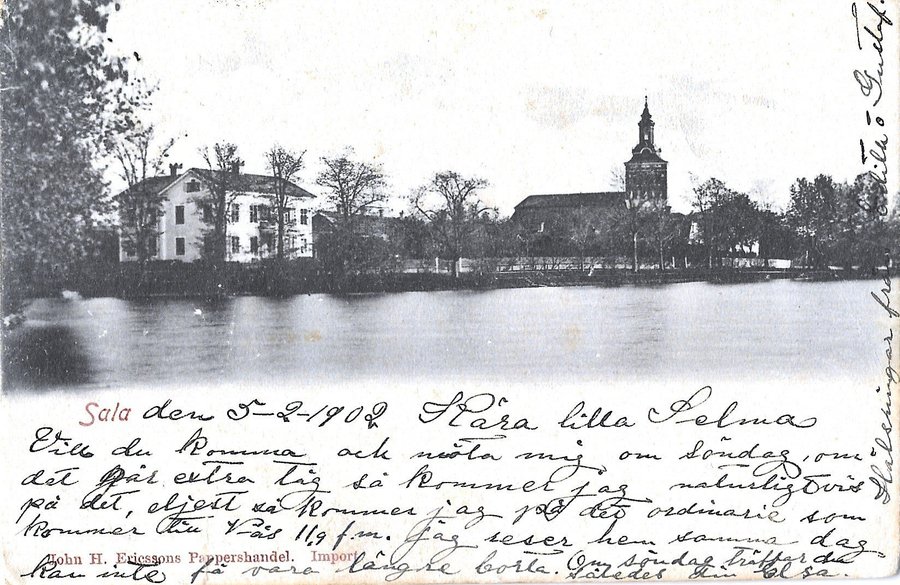 Sala den 5-2-1902 Kära lilla Selma
Vill du komma och möta mig om söndag, om
det går extra tåg så kommer jag naturligtvis
på det, eljest så kommer jag på det ordinarie som
kommer till V-ås 11,9 f.m. Jag reser hem samma dag
kan inte få vara längre borta. Om söndag träffar du
således din Elsa
John H. Ericssons Pappershandel. Import
Hälsningar från
Edila o Gustaf.